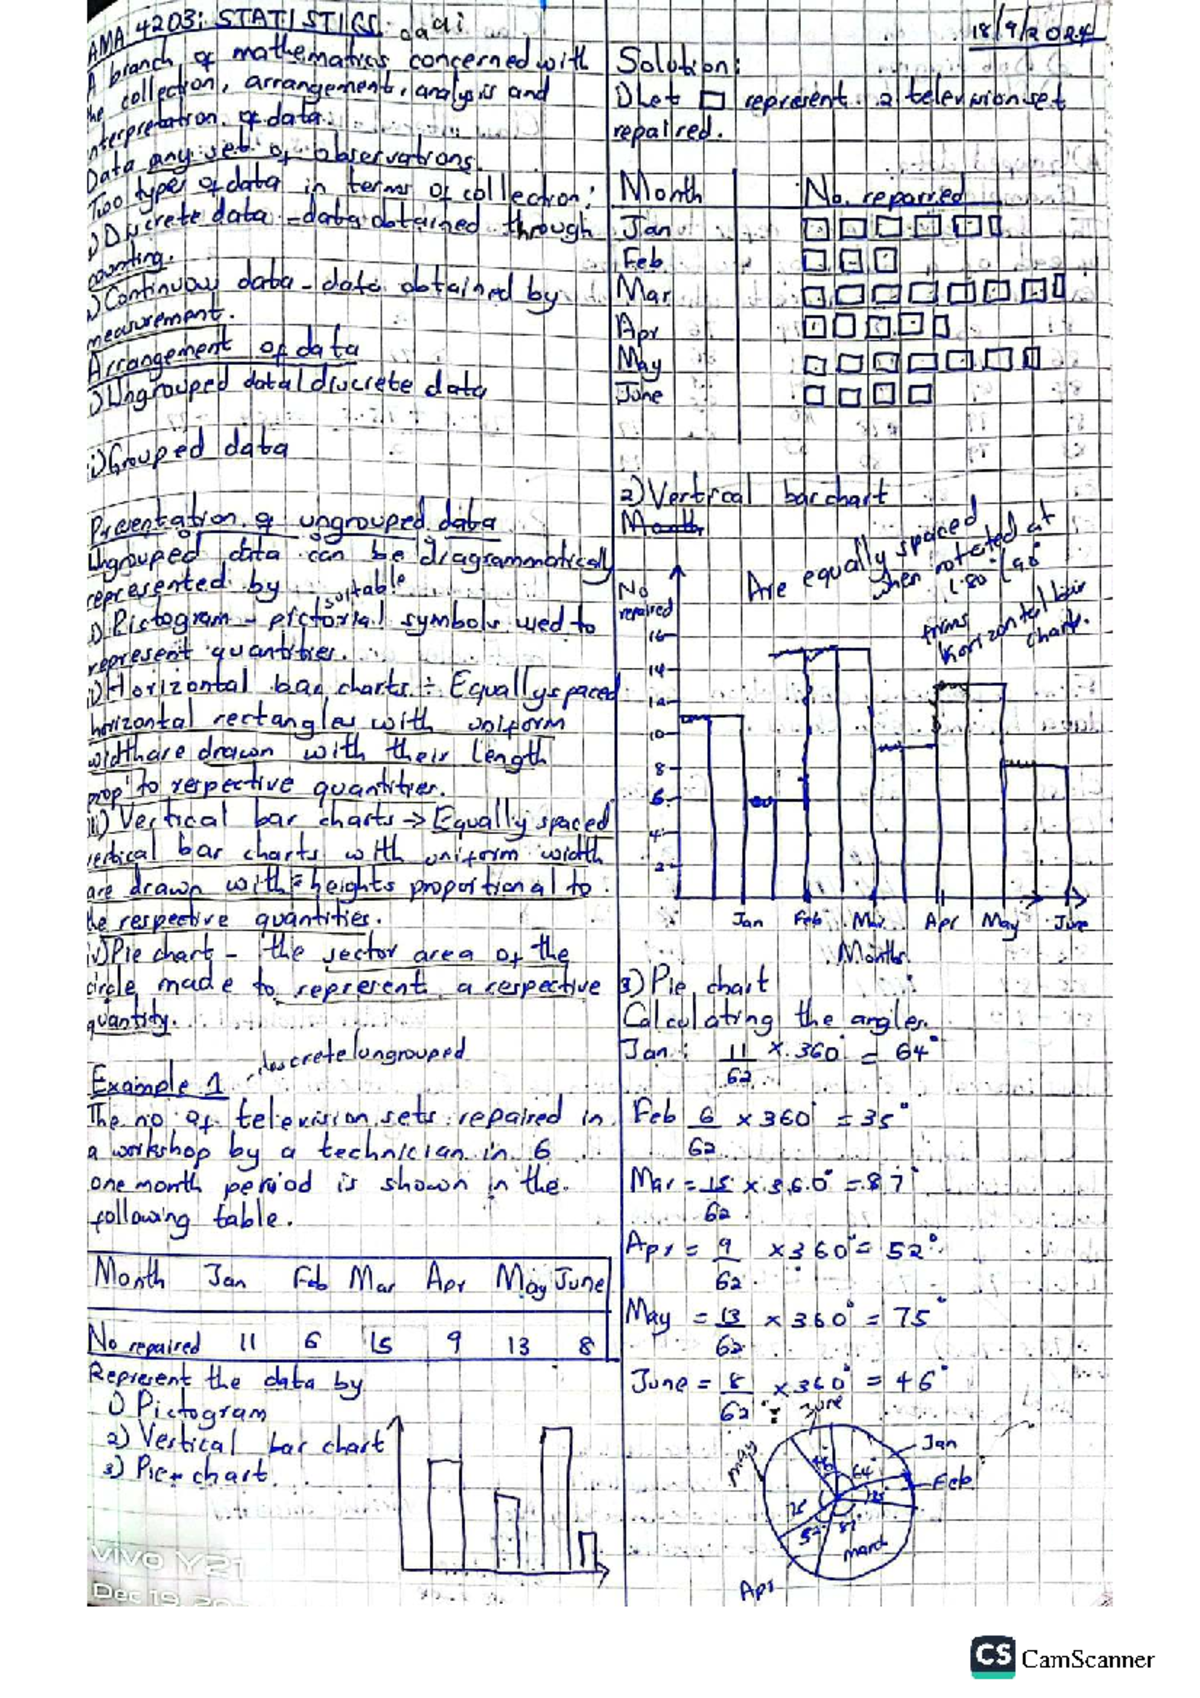 AMA 4203: STATISTICS
A branch of mathematics concerned with
the collection, arrangement, analysis and
interpretation of data.
Data any set of observations.
Two types of data in terms of collection:
i) Discrete data - data obtained through
counting.
ii) Continuous data - data obtained by
measurement.
Arrangement of data
i) Ungrouped data/discrete data
ii) Grouped data
Presentation of ungrouped data
Ungrouped data can be diagrammatically
represented by
suitable
i) Pictogram - pictorial symbols used to
represent quantities.
ii) Horizontal bar charts ÷ Equally spaced
horizontal rectangles with uniform
width are drawn with their length
prop to respective quantities.
iii) Vertical bar charts → Equally spaced
vertical bar charts with uniform width
are drawn with heights proportional to
the respective quantities.
iv) Pie chart - the sector area of the
circle made to represent a respective
quantity.
discrete/ungrouped
Example 1
The no of television sets repaired in
a workshop by a technician in 6
one month period is shown in the
following table.
Month Jan Feb Mar Apr May June
No repaired 11 6 15 9 13 8
Represent the data by
1) Pictogram
2) Vertical bar chart
3) Pie chart
vivo Y21
Dec 19, 20
18/9/2024
Solution:
1) Let □ represent 2 television set
repaired.
Month No. repaired
Jan
Feb
Mar
Apr
May
June
2) Vertical bar chart
Month
Are equally spaced
when rotated at
180°/90°
horizontal bar
chart.
No
repaired
16
14
12
10
8
6
4
2
Jan Feb Mar Apr May June
Months
3) Pie chart
Calculating the angles.
Jan: 11/62 × 360° = 64°
Feb 6/62 × 360° = 35°
Mar = 15/62 × 360° = 87°
Apr = 9/62 × 360° = 52°
May = 13/62 × 360° = 75°
June = 8/62 × 360° = 46°
June
May
Jan
46°
64°
Feb
35°
75
52°
87°
march
Apr
CS CamScanner